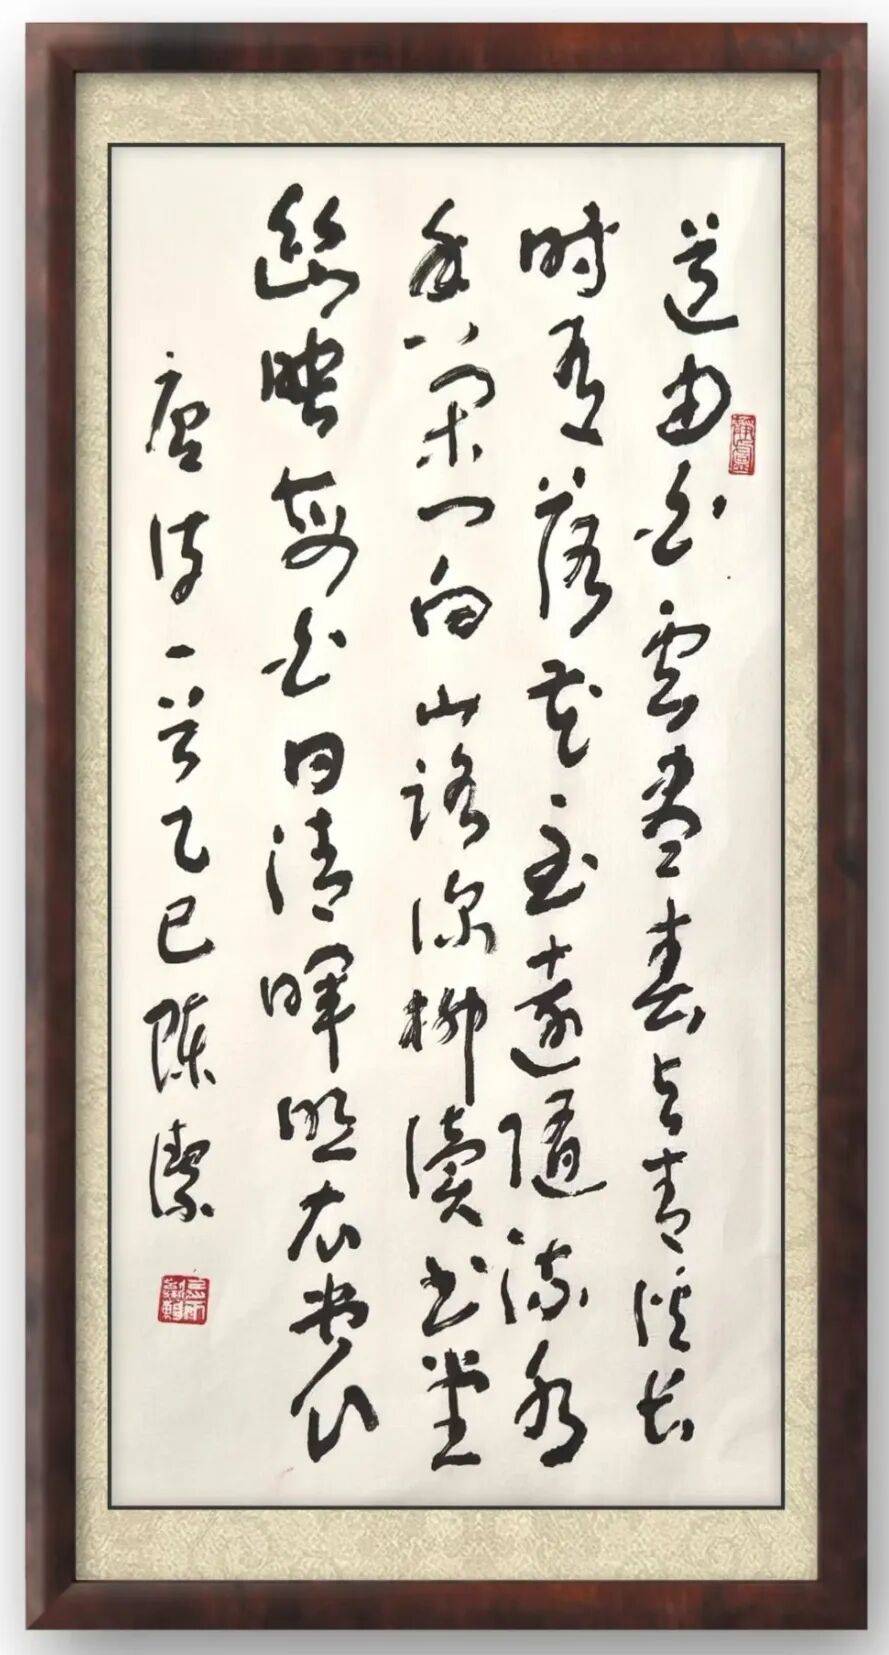 道由白雲盡春与青溪长
时有落花至遠隨流水
香閑门向山路深柳讀书堂
幽映每白日清暉照衣裳
唐诗一首乙巳陈潔